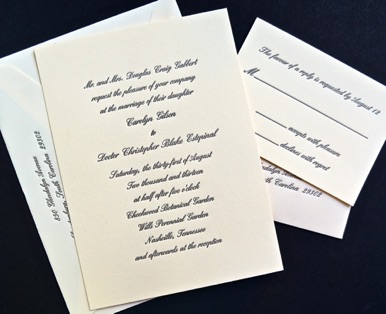 Mr. and Mrs. Douglas Craig Galbert
request the pleasure of your company
at the marriage of their daughter
Carolyn Gilson
to
Doctor Christopher Blake Estopinal
Saturday, the thirty-first of August
Two thousand and thirteen
at half after five o'clock
Cheekwood Botanical Garden
Wills Perennial Garden
Nashville, Tennessee
and afterwards at the reception
The favour of a reply is requested by August 12
M
accepts with pleasure
declines with regret
Carolina 29302
Avenue
South Carolina 29302